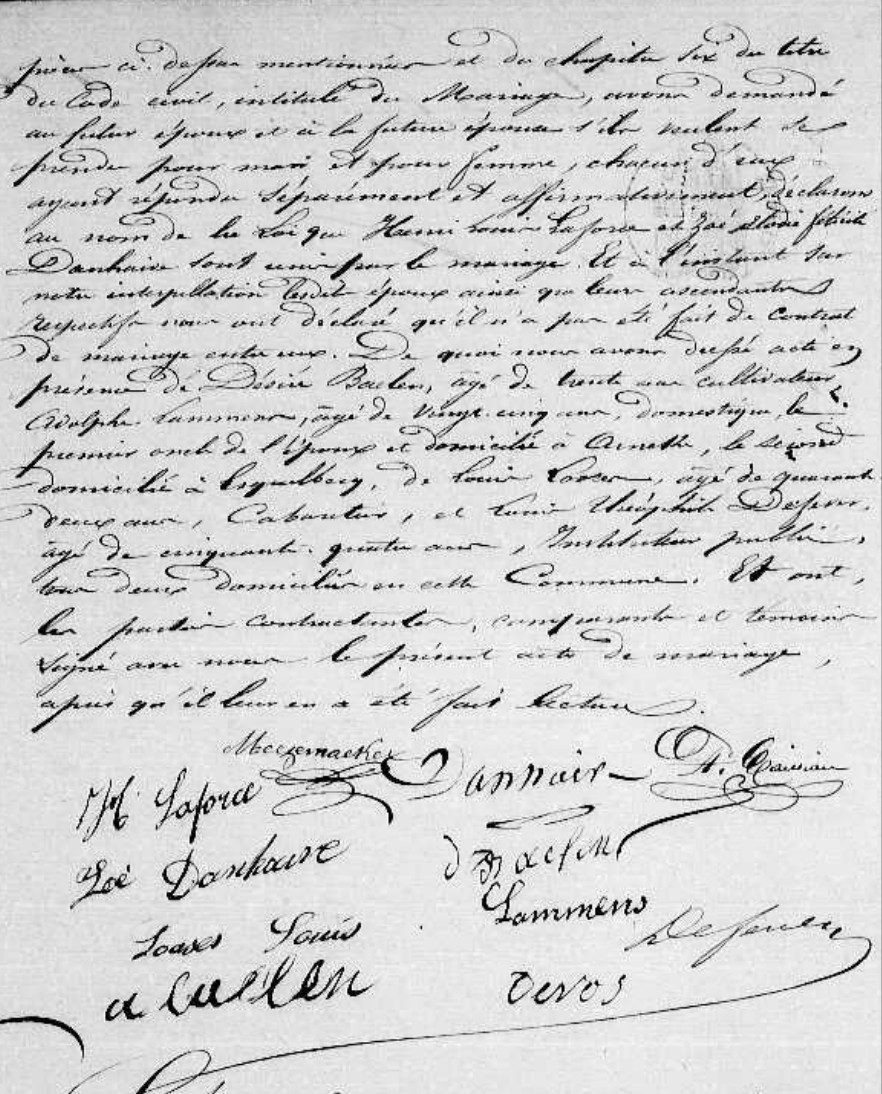 pièces ci-dessus mentionnées et du chapitre six du titre
du Code civil, intitulé du Mariage, avons demandé
au futur époux et à la future épouse s'ils veulent se
prendre pour mari et pour femme, chacun d'eux
ayant répondu séparément et affirmativement, déclarons
au nom de la Loi que Henri Louis Laforce et Zoé Elodie Félicité
Danhaive sont unis par le mariage. Et à l'instant sur
notre interpellation lesdits époux ainsi que leurs ascendants
respectifs nous ont déclaré qu'il n'a pas été fait de contrat
de mariage entre eux. De quoi nous avons dressé acte en
présence de Désiré Baelen, âgé de trente ans cultivateur,
Adolphe Lammens, âgé de vingt-cinq ans, domestique, le
premier oncle de l'époux et domicilié à Arneke, le second
domicilié à Esquelbecq, de Louis , âgé de quarante
deux ans, Cabaretier, et Louis Théophile ,
âgé de cinquante-quatre ans, Instituteur public,
tous deux domiciliés en cette Commune. Et ont,
les parties contractantes, comparants et témoins
signé avec nous le présent acte de mariage,
après qu'il leur en a été fait lecture.
Meezemaeker
H Laforce
Zoé Danhaive
Baelen
Lammens
Louis
Devos